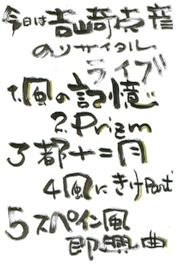 今日は吉崎克彦
のリサイタル
ライブ
1.風の記憶
2.Prizm
3 都十二月
4風にきけPart
5スペイン風
即興曲